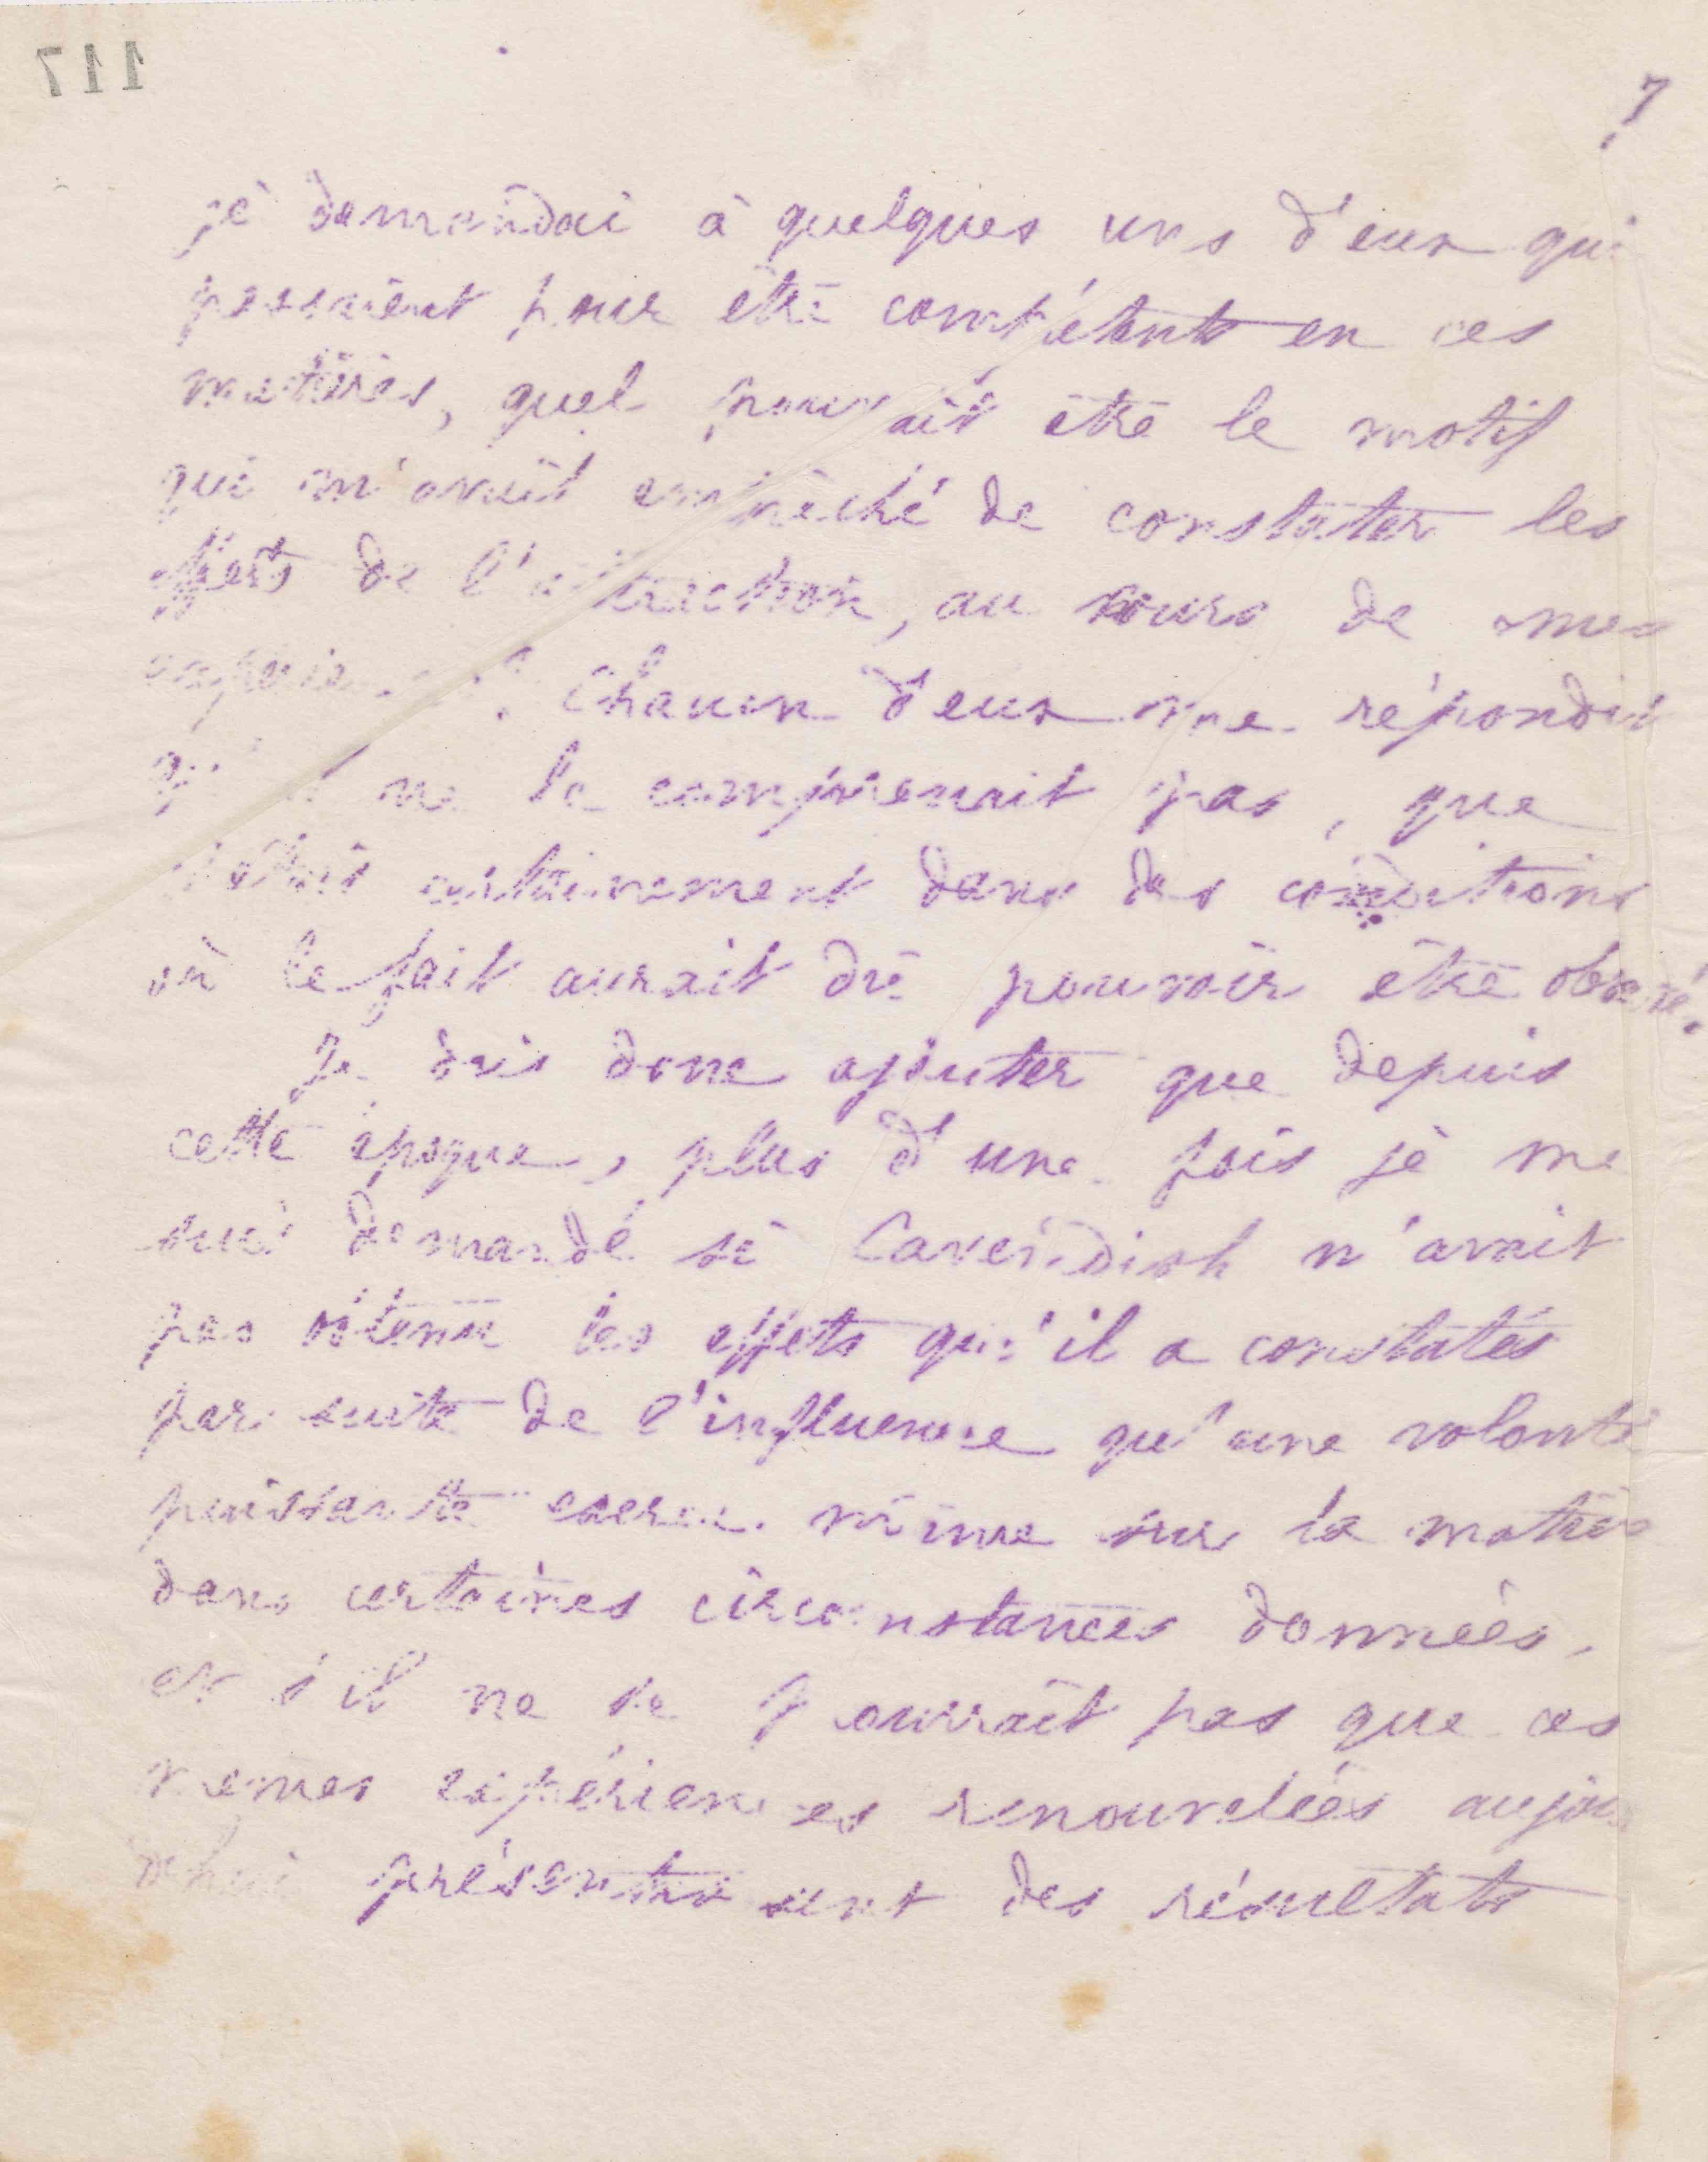 117
7
je demandai à quelques uns d'eux qui
passaient pour être compétents en ces
matières, quel pouvait être le motif
qui m'avait empêché de constater les
effets de l'attraction, au cours de mes
Chacun d'eux me répondit
ne le comprenait pas, que
j'étais certainement dans des conditions
où le fait aurait dû pouvoir être observé.
Je dois donc ajouter que depuis
cette époque, plus d'une fois je me
suis demandé si Cavendish n'avait
pas obtenu les effets qu'il a constatés
par suite de l'influence qu'une volonté
puissante exerce même sur la matière
dans certaines circonstances données,
et s'il ne se pourrait pas que ces
mêmes expériences renouvelées aujour
d'hui présentassent des résultats